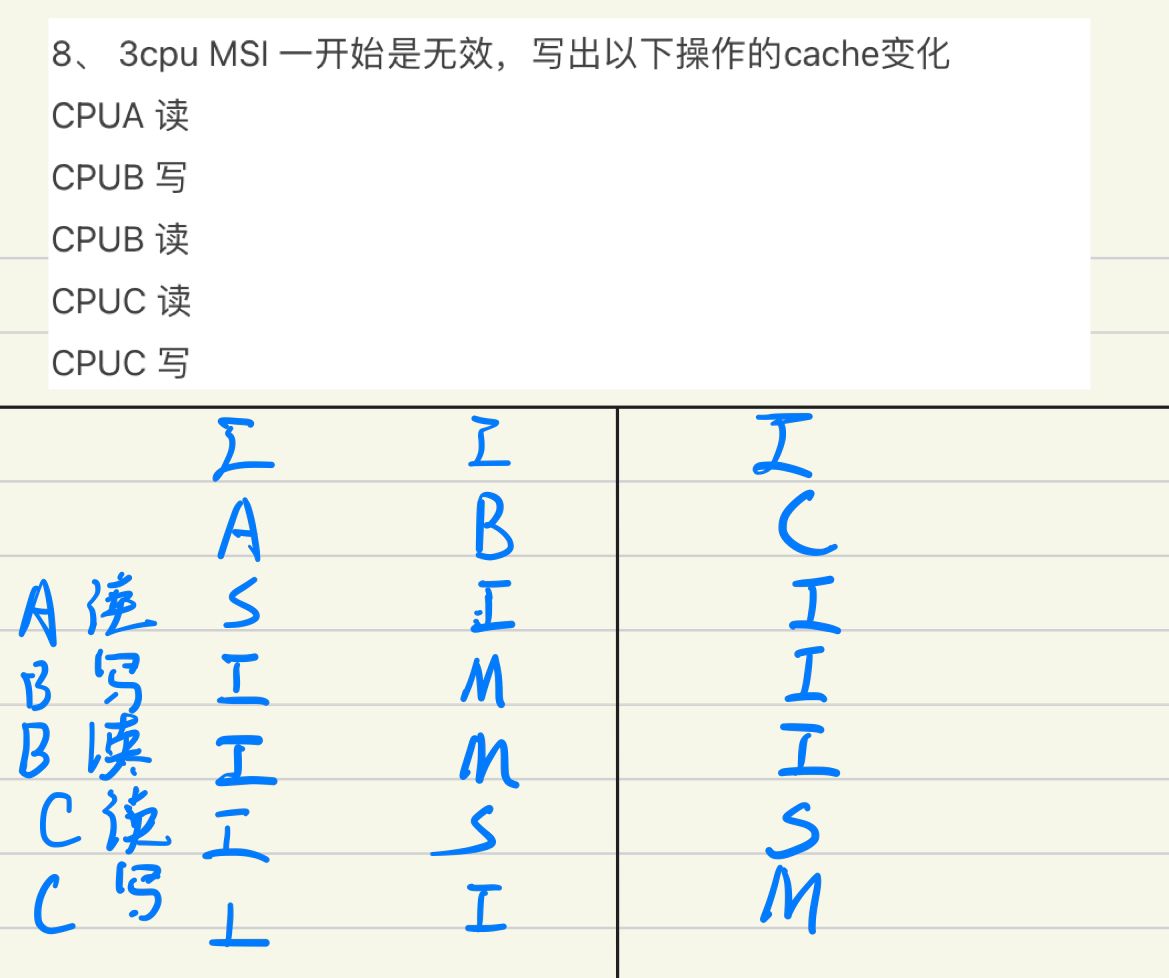 8、 3cpu MSI 一开始是无效，写出以下操作的cache变化
CPUA 读
CPUB 写
CPUB 读
CPUC 读
CPUC 写
I I I
A B C
A 读 S I I
B 写 I M I
B 读 I M I
C 读 I S S
C 写 I I M